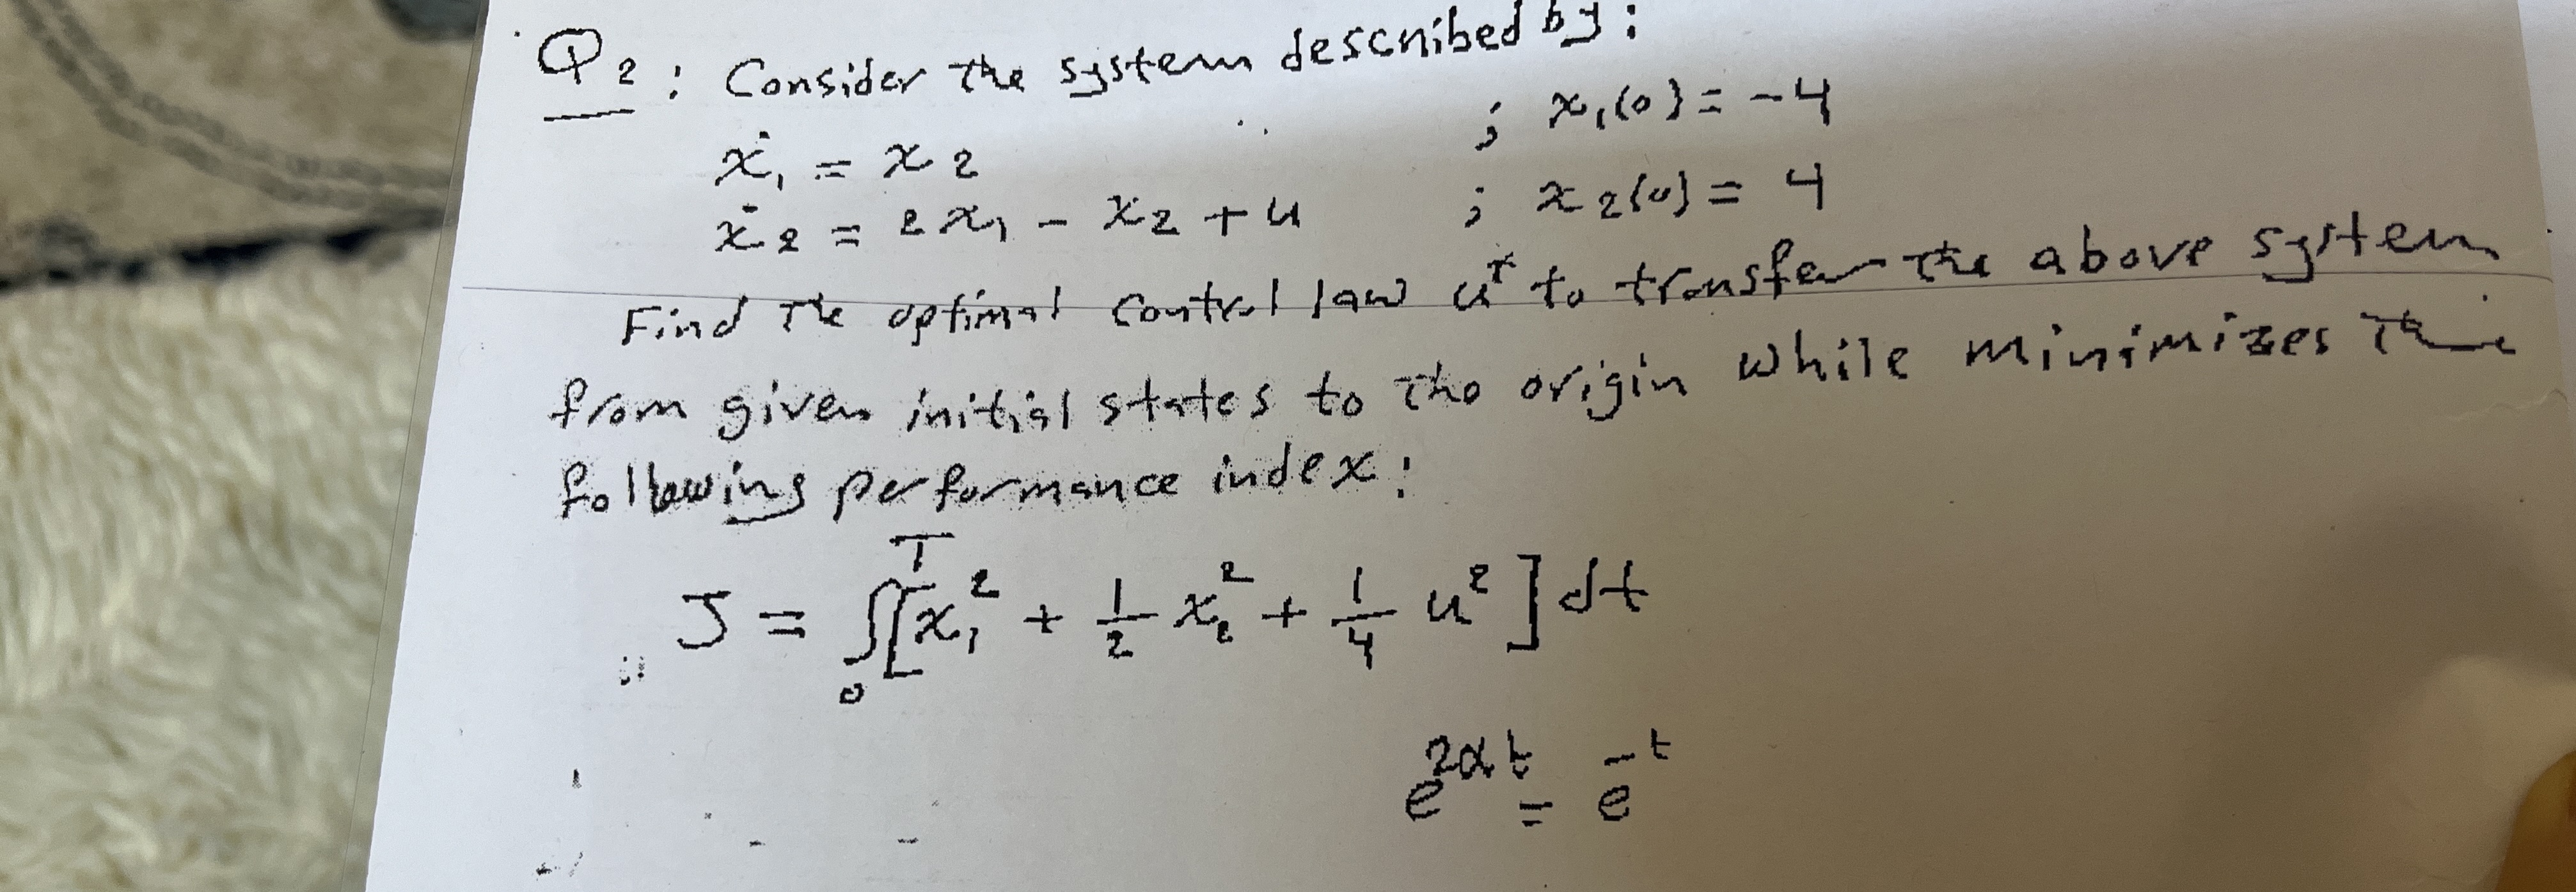 Q2: Consider the system described by:
ẋ₁ = x₂ ; x₁(0) = -4
ẋ₂ = 2x₁ - x₂ + u ; x₂(0) = 4
Find the optimal control law u* to transfer the above system
from given initial states to the origin while minimizes the
following performance index:
J = ∫₀ᵀ [x₁² + 1/2 x₂² + 1/4 u²] dt
e^{2αt} = e^{-t}